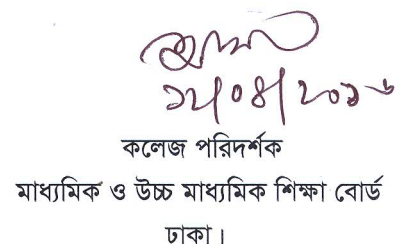 ১২/০৪/২০১৬
কলেজ পরিদর্শক
মাধ্যমিক ও উচ্চ মাধ্যমিক শিক্ষা বোর্ড
ঢাকা।